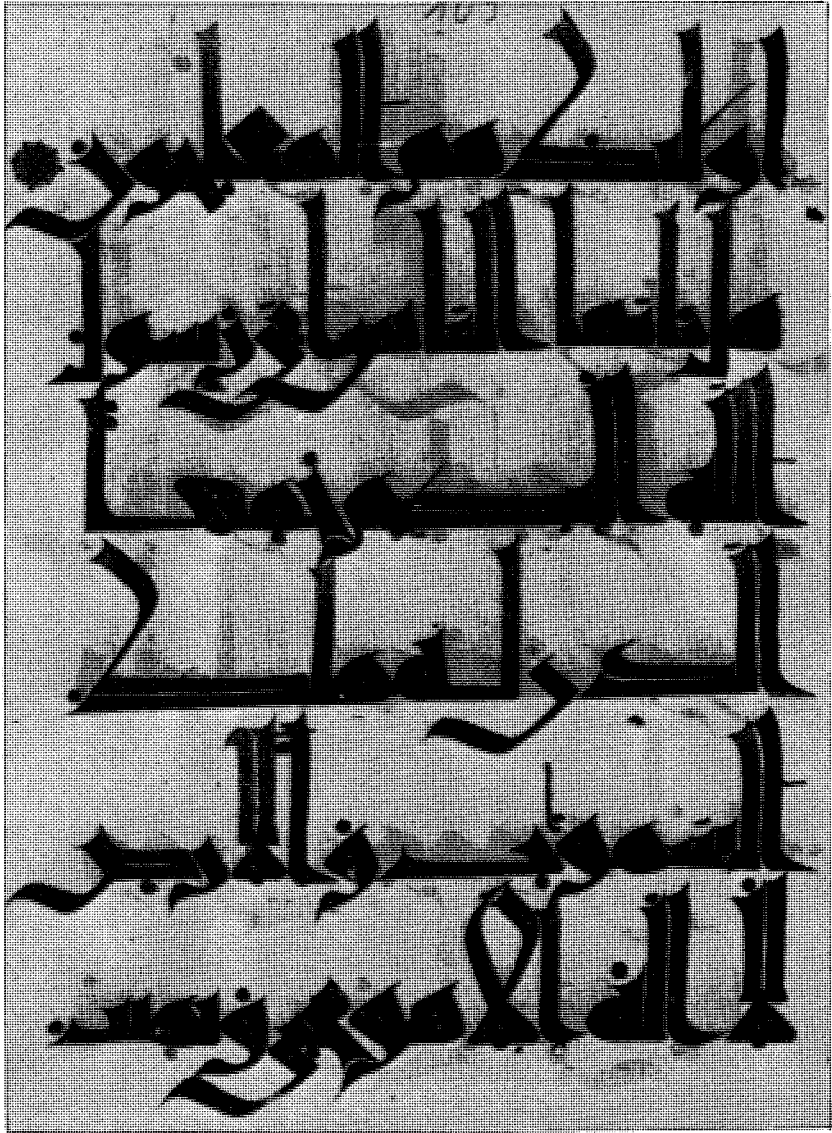 اولئك هم المفلحون
قل يايها الناس اني رسول
الله اليكم جميعا
الذي له ملك
السموت والارض
لا اله الا هو يحي ويميت